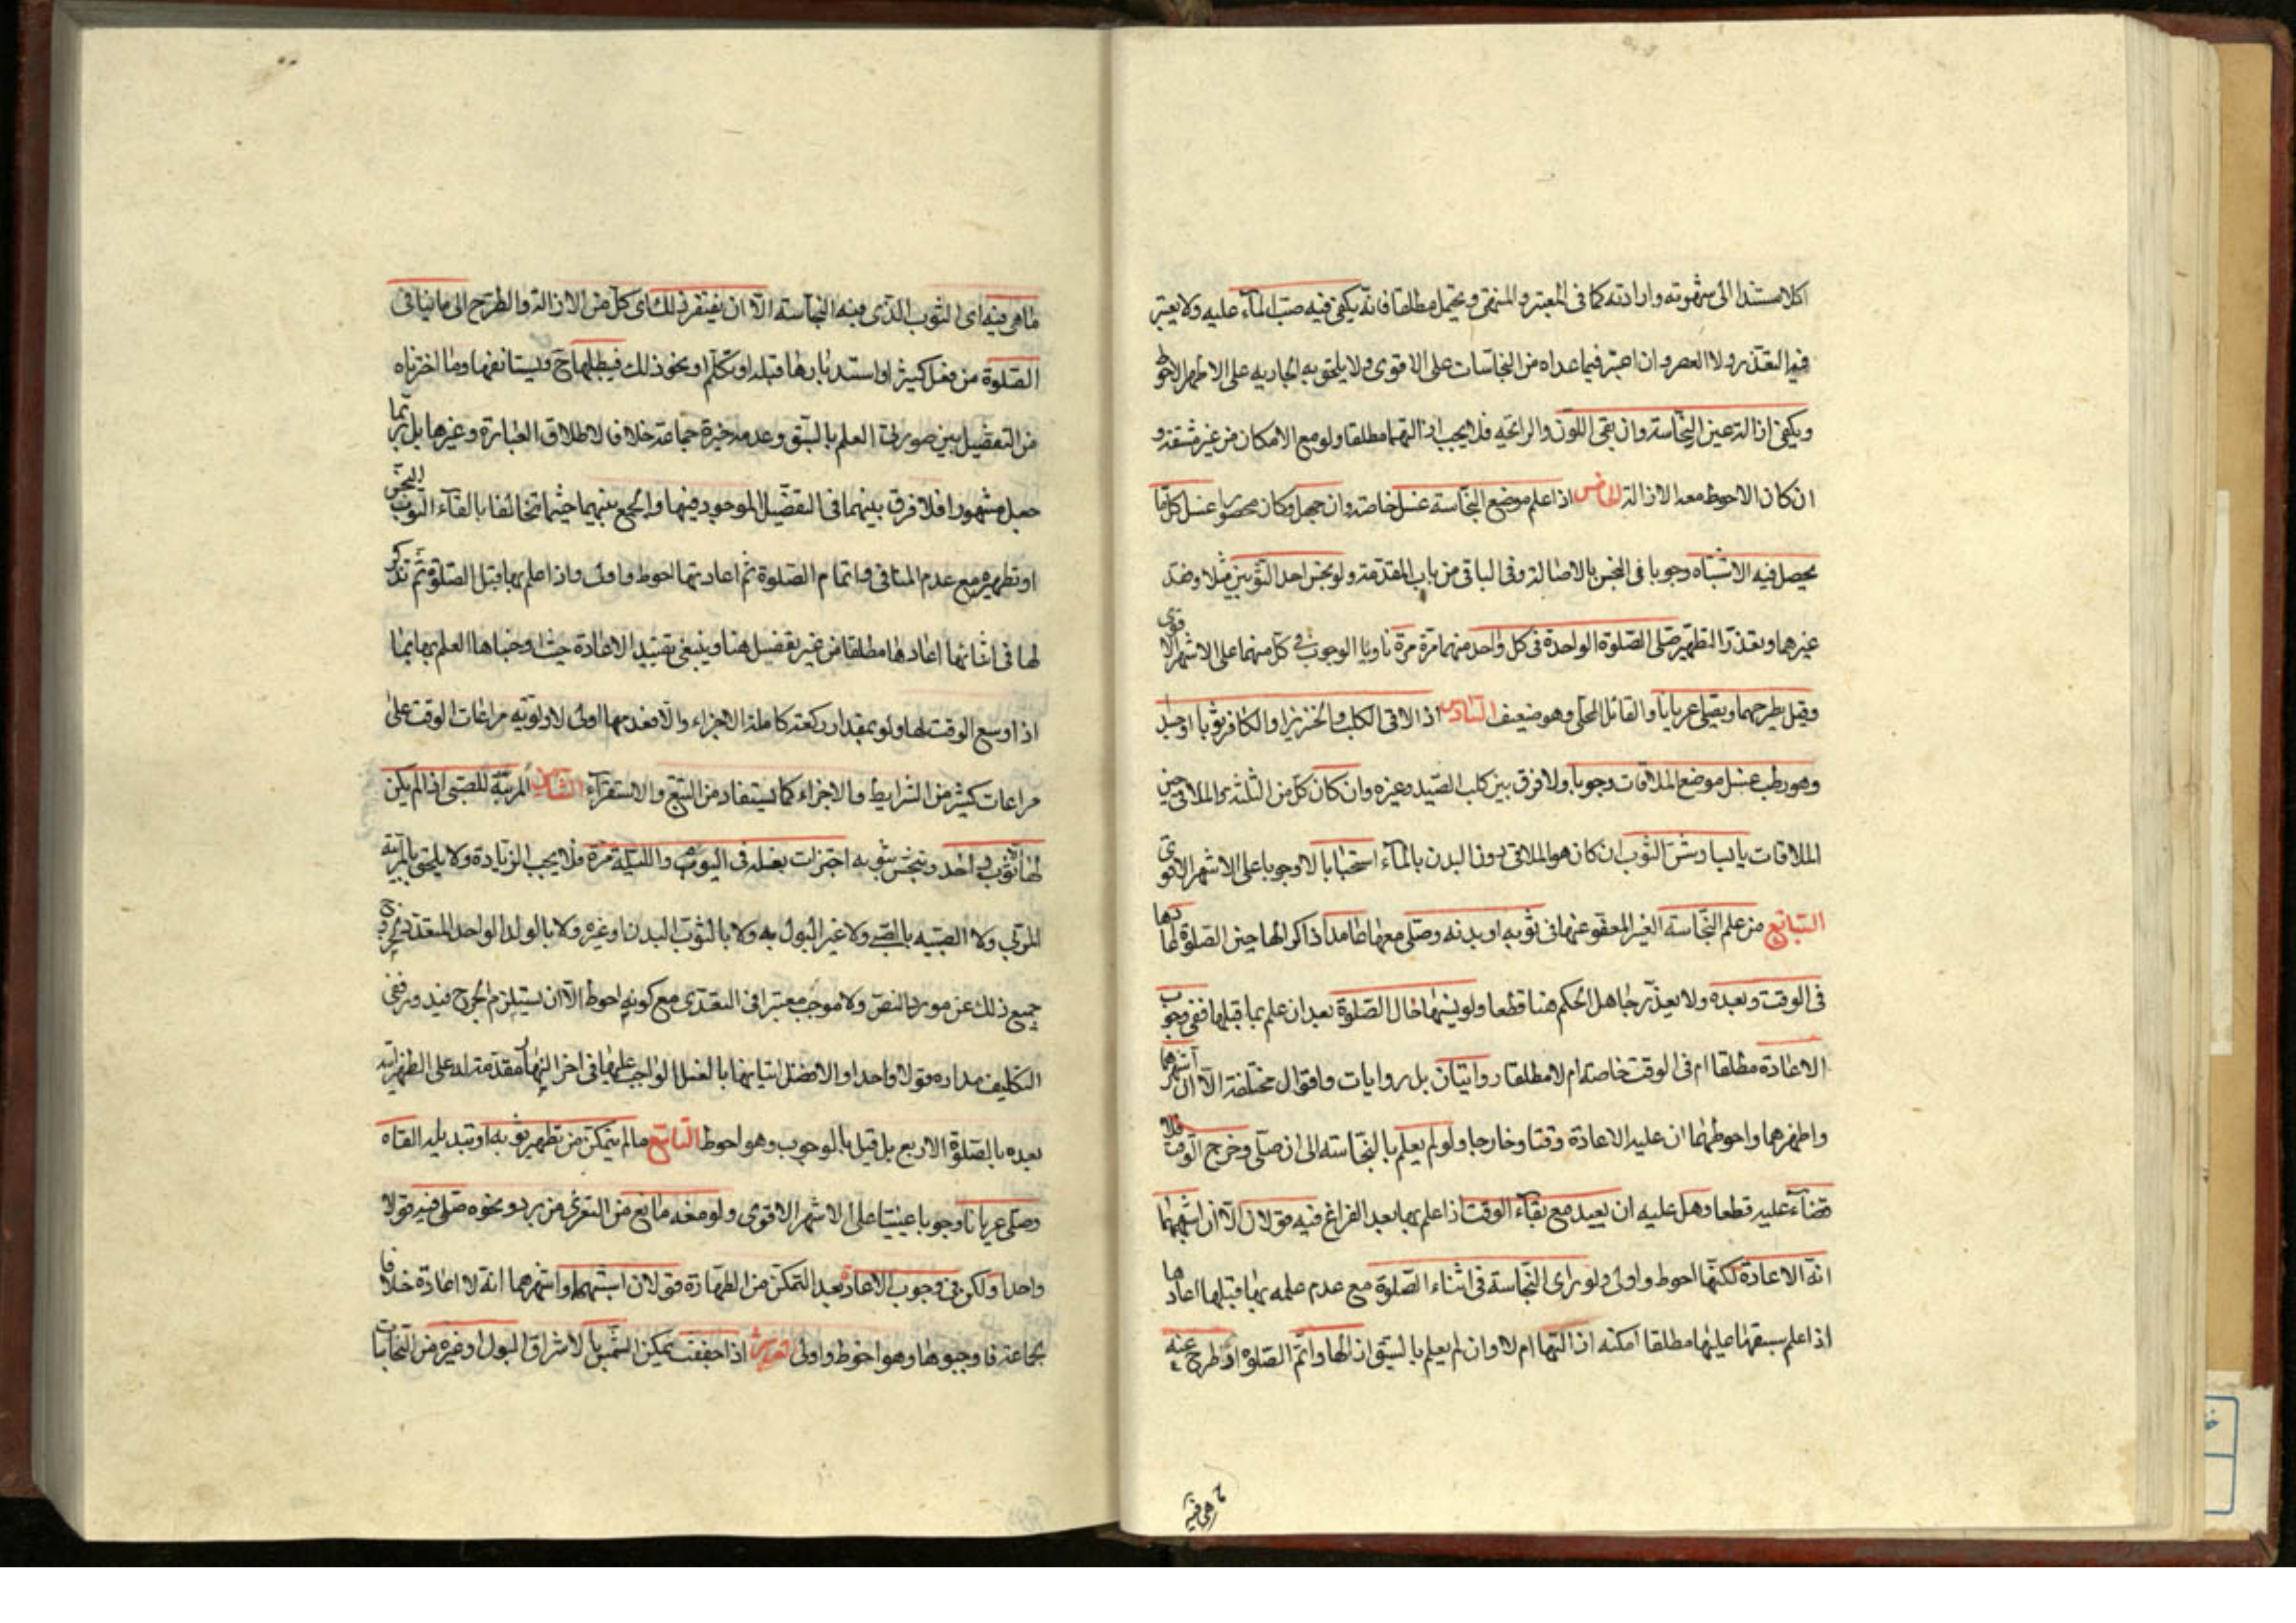 اكلا مستندا الى شهوته وارادته كما فى المعتبر و المنتهى و يحتمل مطلقا فانه يكفى فيه صب الماء عليه ولا يعتبر
فيه التعدد ولا العصر وان اعتبر فيما عداه من النجاسات على الاقوى ولا يلحق به الجارية على الاظهر الاحوط
ويكفى ازالة عين النجاسة وان بقى اللون والرائحة فلا يجب ازالتهما مطلقا ولو مع الامكان من غير مشقة و
ان كان الاحوط معه الازالة الخامس اذا علم موضع النجاسة غسل خاصة وان جهل وكان محصورا غسل كل ما
يحصل فيه الاشتباه وجوبا فى النجس بالاصالة وفى الباقى من باب المقدمة ولو نجس احد الثوبين مثلا وفقد
غيرهما وتعذر التطهير صلى الصلوة الواحدة فى كل واحد منهما مرة مرة ناويا الوجوب فى كل منهما على الاشهر الاقوى
وقيل يطرحهما ويصلى عريانا والقائل الحلى وهو ضعيف السادس اذا لاقى الكلب والخنزير او الكافر ثوبا او جسدا
وهو رطب غسل موضع الملاقات وجوبا ولا فرق بين كلب الصيد وغيره وان كان كل من الثلثة والملاقى حين
الملاقات يابسا رش الثوب ان كان هو الملاقى دون البدن بالماء استحبابا لا وجوبا على الاشهر الاقوى
السابع من علم النجاسة الغير المعفو عنها فى ثوبه او بدنه وصلى معها عامدا ذاكرا لها حين الصلوة اعادها
فى الوقت وبعده ولا يعذر جاهل الحكم هنا قطعا ولو نسيها حال الصلوة بعد ان علم بها قبلها ففى وجوب
الاعادة مطلقا ام فى الوقت خاصة ام لا مطلقا روايتان بل روايات واقوال مختلفة الا ان اشهرها
واظهرها واحوطها ان عليه الاعادة وقتا وخارجا ولو لم يعلم بالنجاسة الى ان صلى وخرج الوقت فلا
قضاء عليه قطعا وهل عليه ان يعيد مع بقاء الوقت اذا علم بها بعد الفراغ فيه قولان الا ان اشبههما
انه لا اعادة لكنها احوط واولى ولو راى النجاسة فى اثناء الصلوة مع عدم علمه بها قبلها اعادها
اذا علم سبقها عليها مطلقا امكنه ازالتها ام لا وان لم يعلم بالسبق ازالها واتم الصلوة او طرح عنه
ما هى فيه
ما هى فيه اى الثوب الذى فيه النجاسة الا ان يفتقر ذلك اى كل من الازالة والطرح الى ما ينافى
الصلوة من فعل كثير او استدبارها قبلة او تكلم او نحو ذلك فيبطلها ح ويستانفها وما اخترناه
من التفصيل بين صورتى العلم بالسبق وعدمه خيرة جماعة خلافا لاطلاق العبارة وغيرها بل ربما
جعل مشهورا فلا فرق بينهما فى التفصيل الموجود فيها والجمع بينهما حيثما تخالفا بالقاء الثوب النجس
او تطهيره مع عدم المنافى واتمام الصلوة ثم اعادتها احوط واولى واذا علم بها قبل الصلوة ثم تذكر
لها فى اثنائها اعادها مطلقا من غير تفصيل هنا وينبغى تقييد الاعادة حيث اوجبناها العلم بها بما
اذا وسع الوقت لها ولو بمقدار ركعة كاملة الاجزاء والا فعدمها اولى لاولوية مراعات الوقت على
مراعات كثير من الشرايط والاجزاء كما يستفاد من التتبع والاستقراء الثامن المربية للصبى اذا لم يكن
لها ثوب الا واحد وتنجس ببوله اجتزات بغسله فى اليوم والليلة مرة فلا يجب الزيادة ولا يلحق بالمربية
المربى ولا الصبية بالصبى ولا غير البول به ولا بالثوب البدن او غيره ولا بالولد الواحد المتعدد لخروج
جميع ذلك عن مورد النص ولا موجب معتبرا فى التعدى مع كونه احوط الا ان يستلزم الحرج فيدور نفى
التكليف مداره قولا واحدا والافضل اتيانها بالغسل الواجب عليها فى اخر النهار مقدمة له على الظهر آتية
بعده بالصلوة الاربع بل قيل بالوجوب وهو احوط التاسع من لم يتمكن من تطهير ثوبه او تبديله القاه
وصلى عريانا وجوبا عينيا على الاشهر الاقوى ولو منعه مانع من التعرى من برد ونحوه صلى فيه قولا
واحدا ولكن فى وجوب الاعادة بعد التمكن من الطهارة قولان اشبههما واشهرهما انه لا اعادة خلافا
لجماعة فاوجبوها وهو احوط واولى العاشر اذا جففت بمكن الشمس بالاشراق البول او غيره من النجاسات